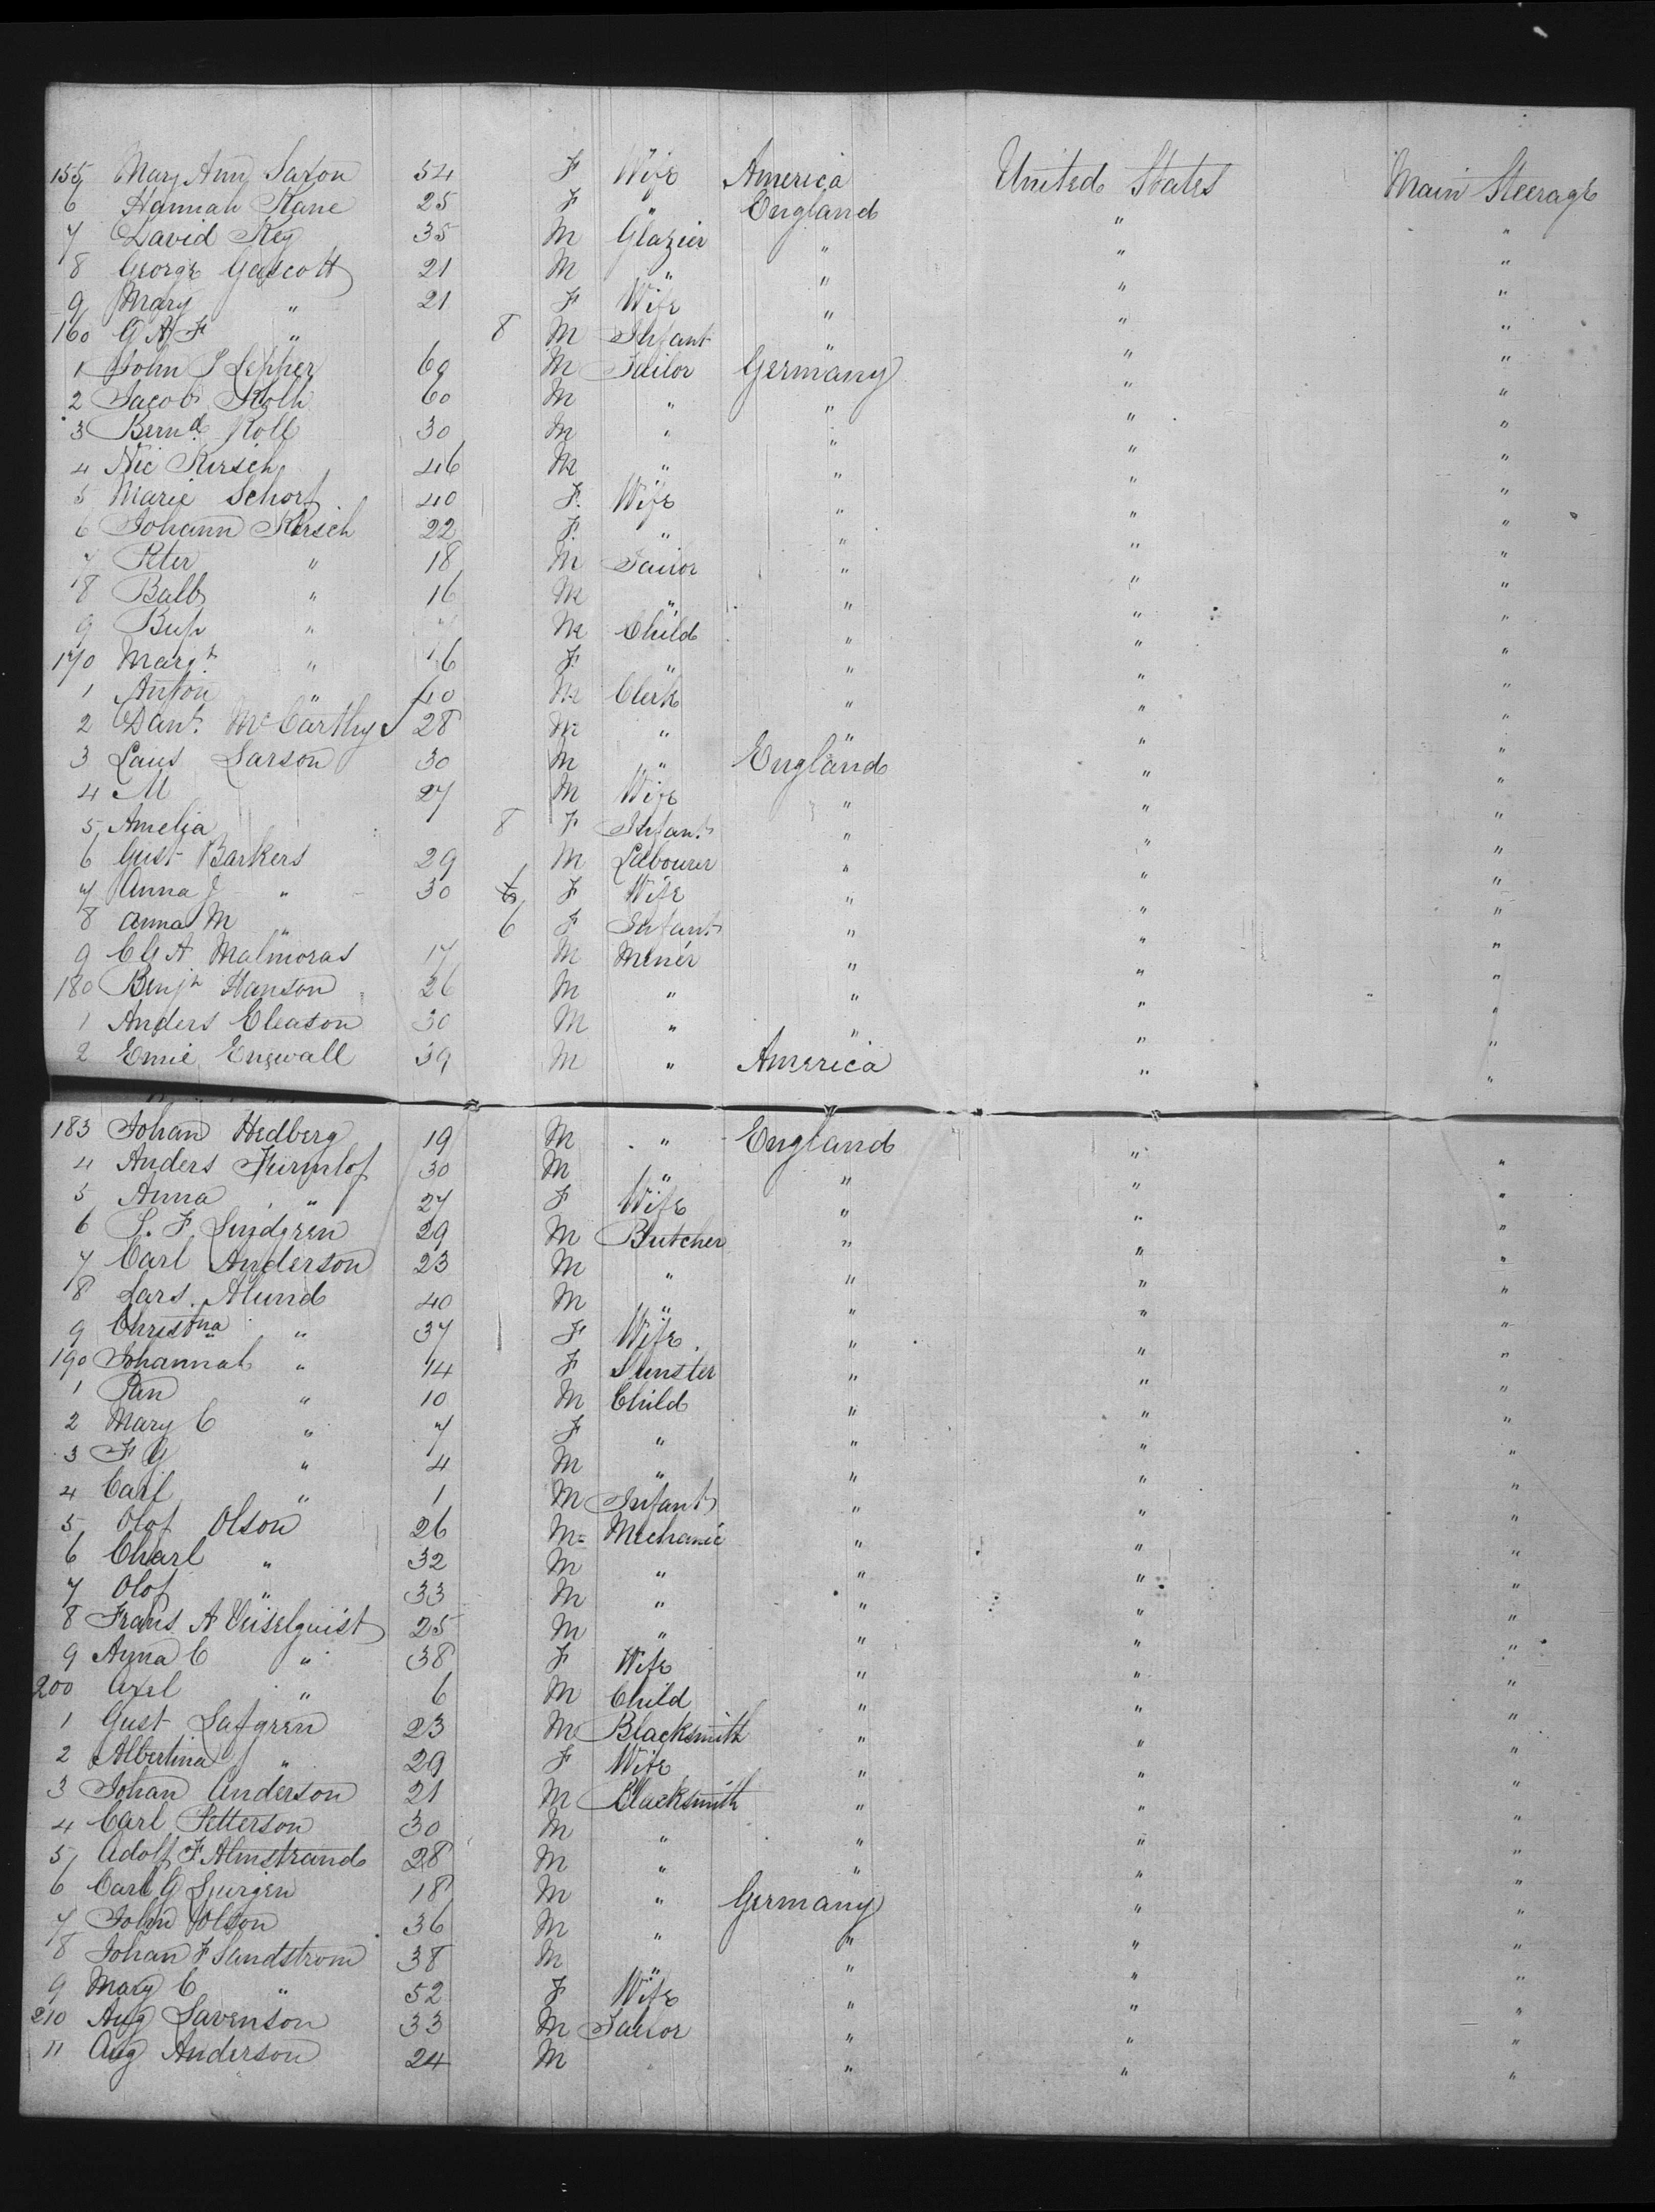 155 Mary Ann Saxon 54 F Wife America United States Main Steerage
6 Hannah Kane 25 F " England " "
7 David Key 35 M Glazier " " "
8 George Gascott 21 M " " " "
9 Mary " 21 F Wife " " "
160 G A F " 8 M Infant " " "
1 John J Lepher 60 M Tailor Germany " "
2 Jacob Kolb 60 M " " " "
3 Bernd Kolb 30 M " " " "
4 Nic Kirsch 46 M " " " "
5 Marie Schorf 40 F. Wife " " "
6 Johann Kirsch 22 F. " " " "
7 Peter " 18 M Tailor " " "
8 Balb " 16 M " " " "
9 " M Child " " "
170 Margt " F. " " " "
1 Anton " 40 M Clerk " " "
2 Danl. McCarthy 28 M " " " "
3 Laus Larson 30 M " England " "
4 M 27 M Wife " " "
5 Amelia 8 F Infant " " "
6 Gust Barkers 29 M Labourer " " "
7 Anna J " 30 F Wife " " "
8 Anna M " 6 F Infant " " "
9 C G A Malmoras 17 M Miner " " "
180 Benjn Hanson 26 M " " " "
1 Anders Eleason 30 M " " " "
2 Emie Engwall 39 M " America " "
183 Johan Hedberg 19 M " England " "
4 Anders 30 M " " " "
5 Anna " 27 F Wife " " "
6 S. F. Lindgren 29 M Butcher " " "
7 Carl Anderson 23 M " " " "
8 Lars. Alund 40 M " " " "
9 Christna " 37 F Wife. " " "
190 Johannah " 14 F Spinster " " "
1 Pan " 10 M Child " " "
2 Mary C " 7 F " " " "
3 F G " 4 M " " " "
4 Carl " 1 M Infant " " "
5 Olof Olson 26 M Mechanic " " "
6 Charl " 32 M " " " "
7 Olof " 33 M " " " "
8 Frans A Veiselquist 25 M " " " "
9 Anna C " 38 F Wife " " "
200 Axel " 6 M Child " " "
1 Gust Lafgren 23 M Blacksmith " " "
2 Albertina " 29 F Wife " " "
3 Johan Anderson 21 M Blacksmith " " "
4 Carl Petterson 30 M " " " "
5 Adolf F Almstrand 28 M " " " "
6 Carl G Ljurgen 18 M " Germany " "
7 John Olson 36 M " " " "
8 Johan F Sandstrom 38 M " " " "
9 Mary C " 52 F Wife " " "
210 Aug Lavenson 33 M Tailor " " "
11 Aug Anderson 24 M " " " "